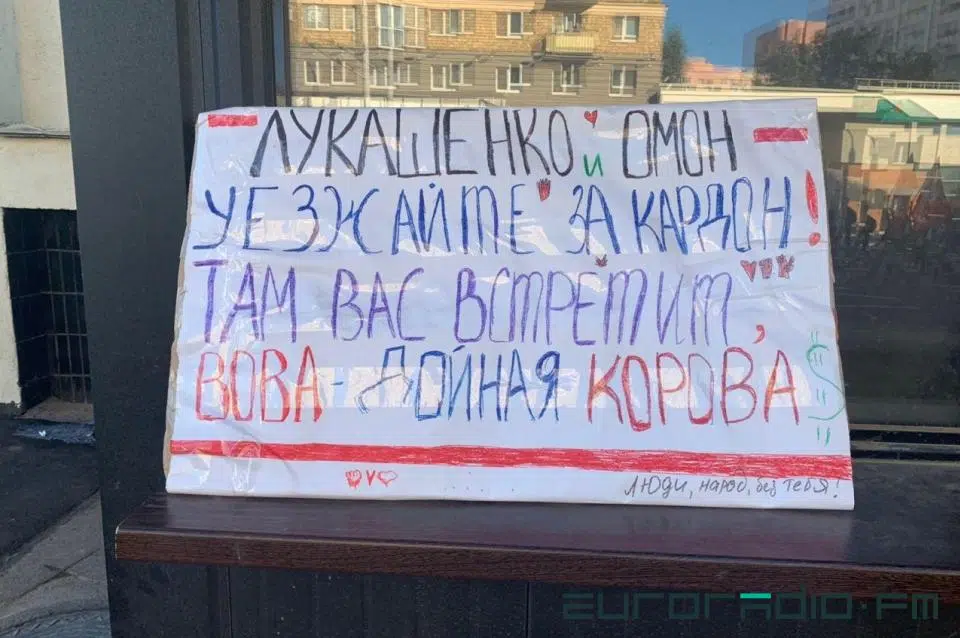 ЛУКАШЕНКО и ОМОН
УЕЗЖАЙТЕ ЗА КАРДОН!
ТАМ ВАС ВСТРЕТИТ,
ВОВА - ДОЙНАЯ КОРОВА
V
Люди, народ, без тебя!
euroradio.fm